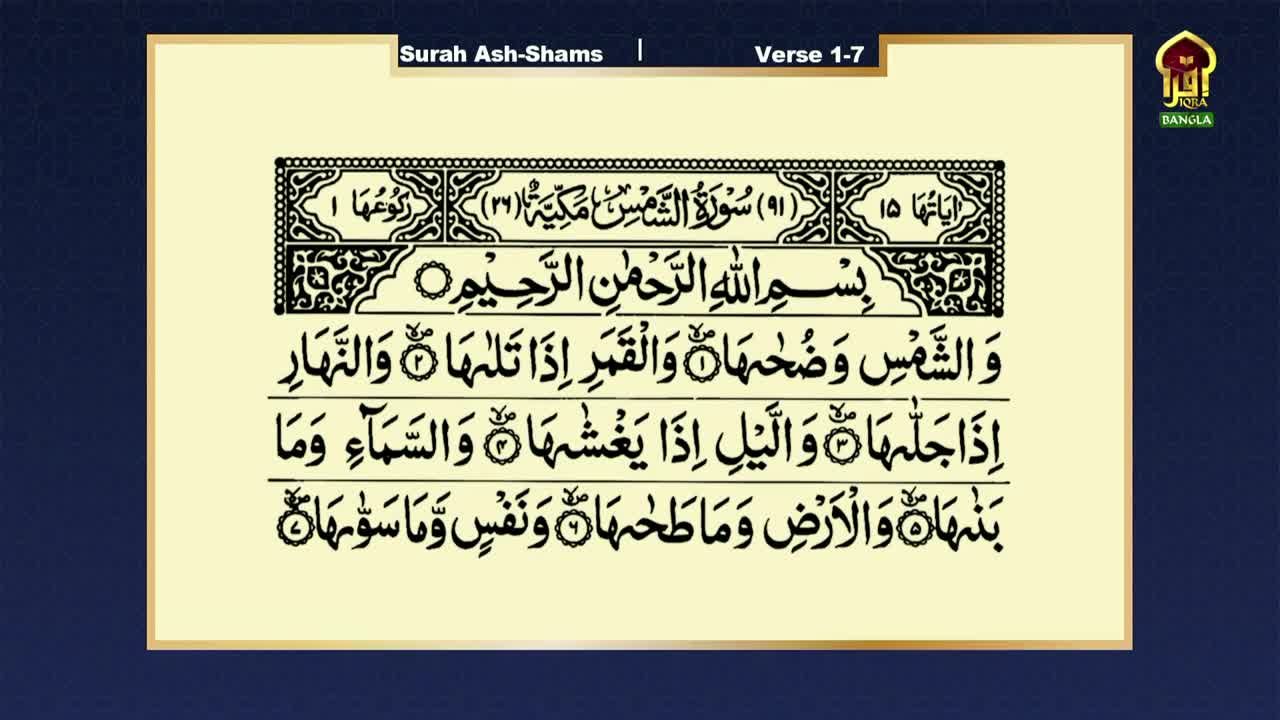 Surah Ash-Shams | Verse 1-7
اقرأ
IQRA
BANGLA
اٰیَاتُهَا ١٥ (٩١) سُوْرَةُ الشَّمْسِ مَكِّیَّةٌ (٢٦) رُكُوْعُهَا ١
بِسْمِ اللّٰهِ الرَّحْمٰنِ الرَّحِیْمِ
وَ الشَّمْسِ وَ ضُحٰىهَا ۪ۙ﴿۱﴾ وَ الْقَمَرِ اِذَا تَلٰىهَا ۪ۙ﴿۲﴾ وَ النَّهَارِ
اِذَا جَلّٰىهَا ۪ۙ﴿۳﴾ وَ الَّیْلِ اِذَا یَغْشٰىهَا ۪ۙ﴿۴﴾ وَ السَّمَآءِ وَ مَا
بَنٰىهَا ۪ۙ﴿۵﴾ وَ الْاَرْضِ وَ مَا طَحٰىهَا ۪ۙ﴿۶﴾ وَ نَفْسٍ وَّ مَا سَوّٰىهَا ۪ۙ﴿۷﴾